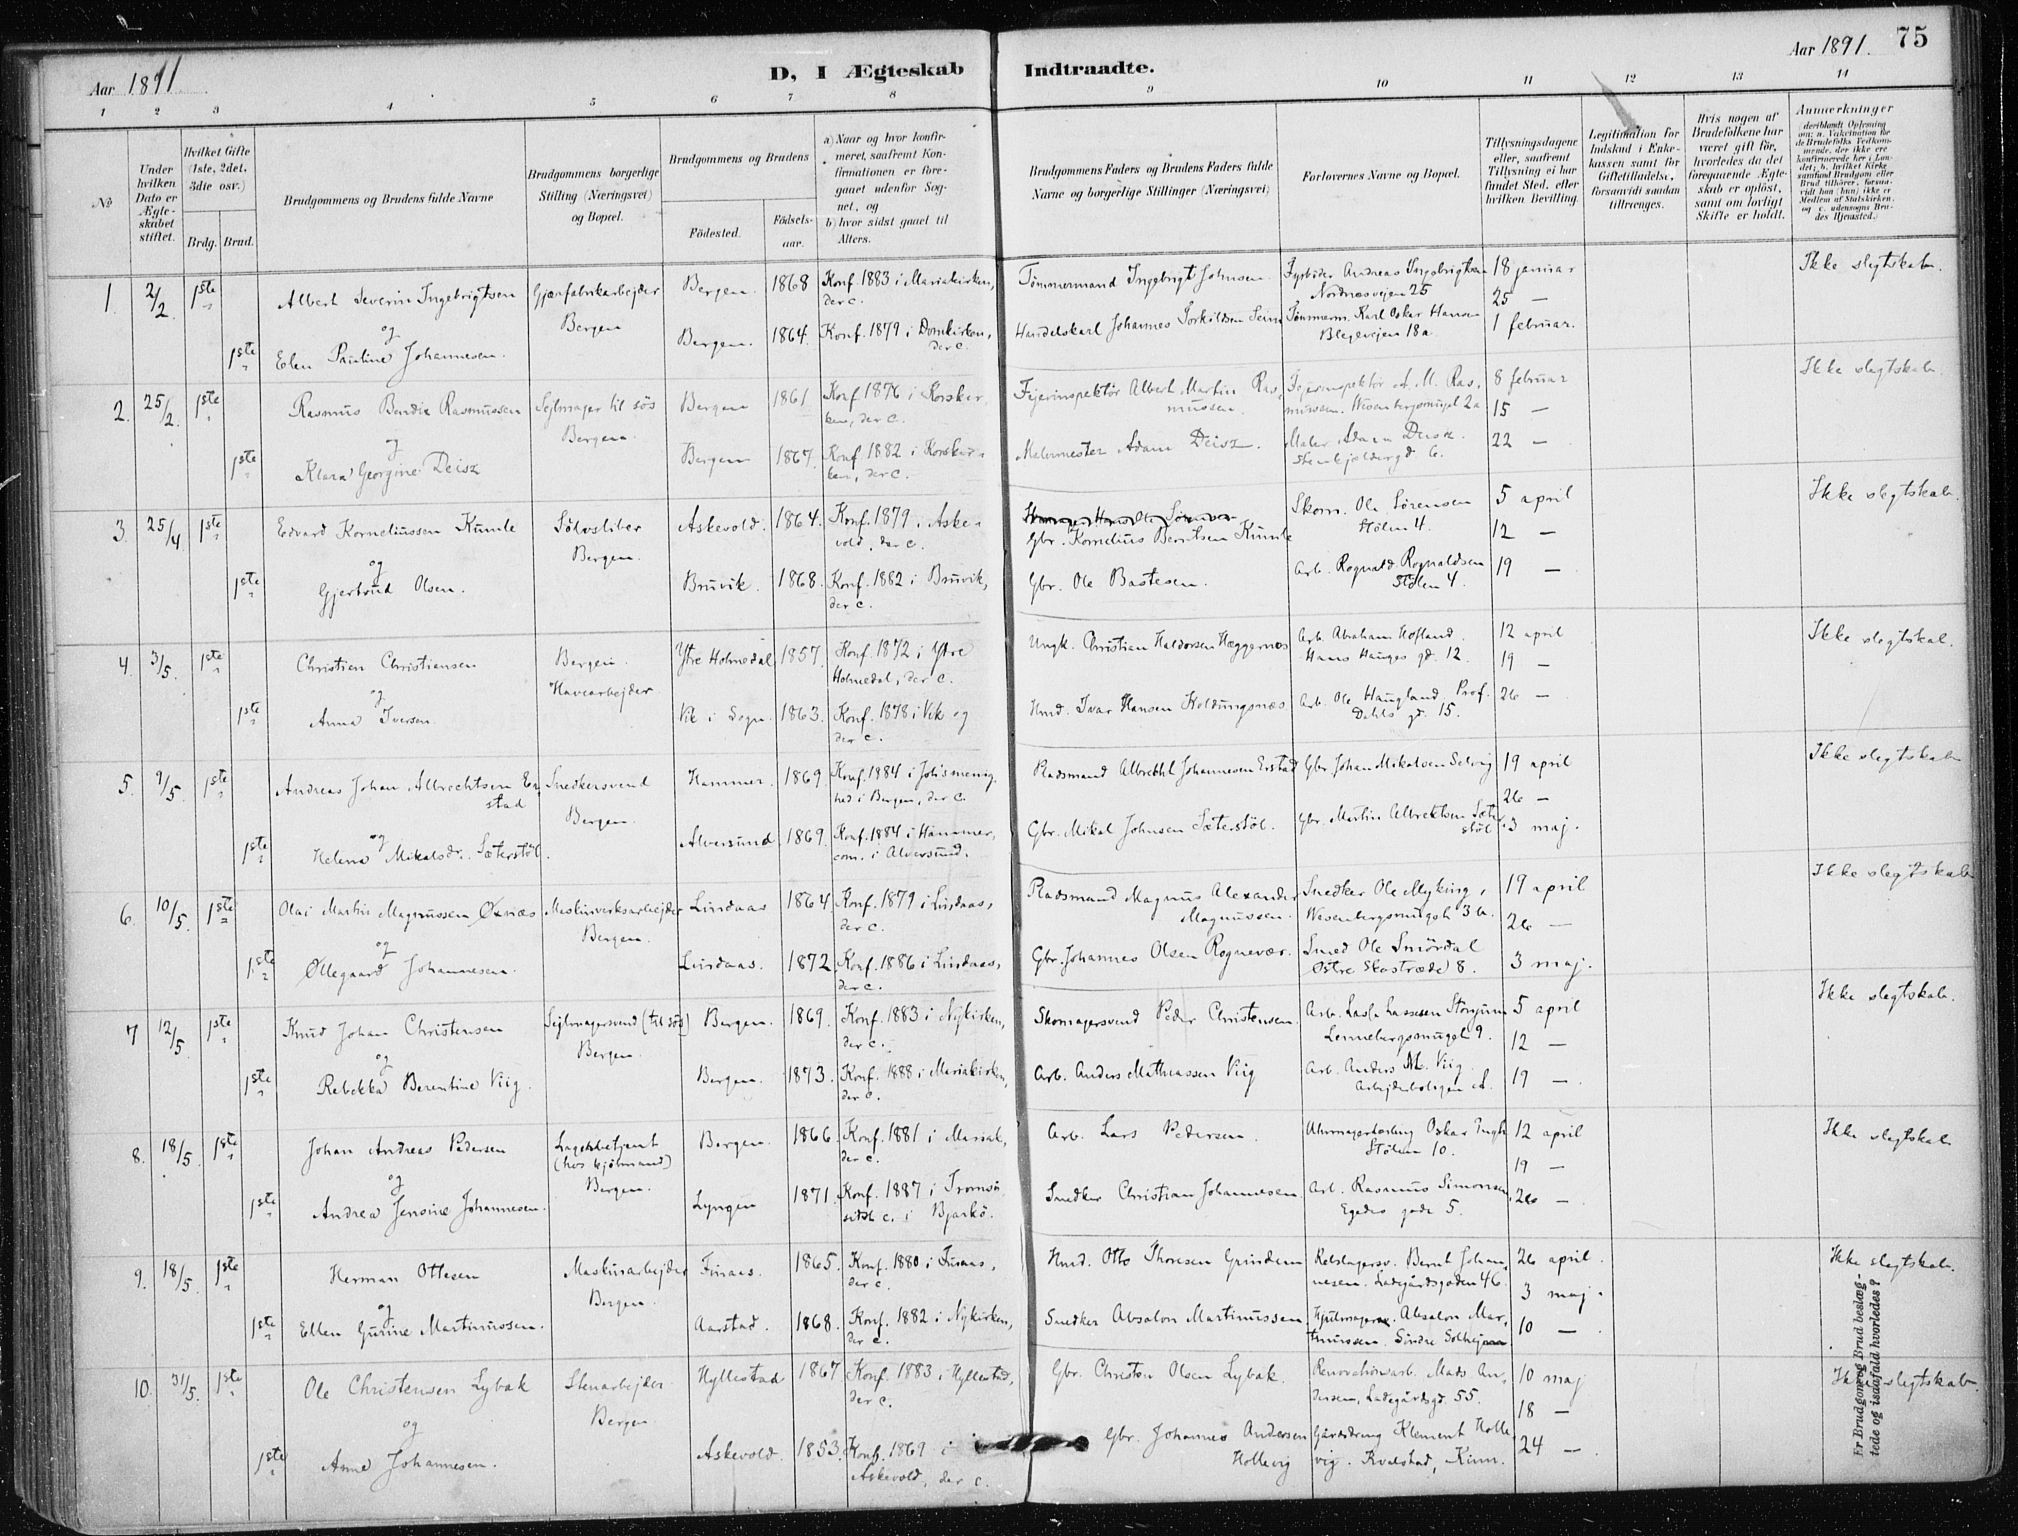 Aar 1891.
D, I Ægteskab Indtraadte.
Aar 1891. 75
1 2 3 4 5 6 7 8 9 10 11 12 13 14
No
Under hvilken Dato er Ægteskabet stiftet.
Hvilket Gifte (1ste, 2det, 3dte osv.)
Brdg. Brud.
Brudgommens og Brudens fulde Navne
Brudgommens borgerlige Stilling (Næringsvei) og Bopæl.
Brudgommens og Brudens
Födested.
Födselsaar.
a) Naar og hvor konfirmeret, saafremt Konfirmationen er foregaaet udenfor Sognet, og
b) hvor sidst gaaet til Alters.
Brudgommens Faders og Brudens Faders fulde Navne og borgerlige Stillinger (Næringsvei)
Forlovernes Navne og Bopæl.
Tillysningsdagene eller, saafremt Tillysning ei har fundet Sted, efter hvilken Bevilling.
Legitimation for Indskud i Enkekassen samt for Giftetilladelse, forsaavidt saadan tiltrænges.
Hvis nogen af Brudefolkene har været gift för, hvorledes da det foregaaende Ægteskab er oplöst, samt om lovligt Skifte er holdt.
Anmerkninger
1. 2/2. 1ste Albert Severin Ingebrigtsen Gjærfabrikarbejder Bergen 1868 Konf. 1883 i Mariakirken, der c. Tømmermand Ingebrigt Johnsen Fyrbøder Andreas Ingebrigtsen Nordnæsvejen 25 18 januar Ikke slegtskab.
og Bergen 25 —
1ste Elen Pauline Johannesen. Bergen. 1864. Konf. 1879 i Domkirken, der c. Handelskarl Johannes Torkildsen Seim Tømmerm. Karl Oskar Hansen Blegevejen 18a. 1 februar.
2. 25/2. 1ste Rasmus Bendix Rasmussen Sejlmager til søs Bergen 1861 Konf. 1876 i Korskirken, der c. Fejerinspektør Albert Martin Rasmussen. Fejerinspektør A. M. Rasmussen. Wesenbergsmuget 2a 8 februar Ikke slegtskab.
og Bergen. 15 —
1ste Klara Georgine Deisz Bergen 1867. Konf. 1882 i Korskirken, der c. Malermester Adam Deisz. Maler Adam Deisz. Stenkjeldergd. 6. 22 —
3. 25/4 1ste Edvard Korneliussen Kumle Sølvsliber Askevold. 1864. Konf. 1879 i Askevold, der c. Gbr. Kornelius Berntsen Kumle Skom. Ole Sørensen Stølen 4. 5 april Ikke slegtskab.
og Bergen. 12 —
1ste Gjertrud Olsen. Bruvik. 1868. Konf. 1882 i Bruvik, der c. Gbr. Ole Bastesen. Arb. Rognald Rognaldsen Stølen 4. 19 —
4. 3/5. 1ste Christian Christiansen Bergen. Ytre Holmedal 1857. Konf. 1872 i Ytre Holmedal, der c. Ungk. Christian Haldorsen Hæggernæs Arb. Abraham Hofland. Hans Hauges gd. 12. 12 april Ikke slegtskab.
og Havearbejder. 19 —
1ste Anna Iversen. Vik i Sogn. 1863. Konf. 1878 i Vik og der c. Hmd. Ivar Hansen Holdungsnæs Arb. Ole Haugland. Prof. Dahls gd. 15. 26 —
5. 9/5. 1ste Andreas Johan Albrechtsen Erstad Snedkersvend Hammer. 1869. Konf. 1884 i Joh's menighed i Bergen, der c. Pladsmand Albrekt Johannesen Erstad Gbr. Johan Mikalsen Selvig 19 april Ikke slegtskab
og Bergen. 26 —
1ste Helena Mikalsdr. Sæterstøl. Alversund 1869. Konf. 1884 i Hammer, com. i Alversund. Gbr. Mikal Johnsen Sæterstøl. Gbr. Martin Albrektsen Sæterstøl 3 maj.
6. 10/5. 1ste Olai Martin Magnussen Oxnæs Maskinverksarbejder Lindaas 1864. Konf. 1879 i Lindaas, der c. Pladsmand Magnus Alexander Magnussen. Snedker Ole Myking, Wesenbergsmuget 3b. 19 april Ikke slegtskab
og Bergen. 26 —
1ste Øllegaard Johannesen. Lindaas. 1872. Konf. 1886 i Lindaas, der c. Gbr. Johannes Olsen Rognevær. Smed Ole Smørdal Østre Skostræde 8. 3 maj.
7 12/5. 1ste Knud Johan Christensen Sejlmagersvend (til søs) Bergen. 1869. Konf. 1883 i Nykirken, der c. Skomagersvend Peder Christensen. Arb. Lasse Lassesen Storjum Lennebergsmuget 9. 5 april Ikke slegtskab.
og Bergen. 12 —
1ste Rebekka Berentine Viig. Bergen. 1873. Konf. 1888 i Mariakirken, der c. Arb. Anders Mathiassen Viig Arb. Anders M. Viig. Arbejderboligen 19 —
8. 18/5. 1ste Johan Andreas Pedersen Lagerbetjent (hos kjøbmand) Bergen. 1866. Konf. 1881 i Mariak., der c. Arb. Lars Pedersen. Uhrmagerlærling Oskar Stølen 10. 12 april Ikke slegtskab
og Bergen. 19 —
1ste Andrea Jensine Johannesen. Lyngen 1871. Konf. 1887 i Tromsø, sidst c. i Bjarkø. Snedker Christian Johannesen. Arb. Rasmus Simonsen, Egedes gade 5. 26 —
9. 18/5. 1ste Herman Ottesen Maskinarbejder Finaas. 1865. Konf. 1880 i Finaas, der c. Hmd. Otto Thoresen Grindem Rebslagersv. Bernt Johannesen. Ladegårdsgaden 46. 26 april. Ikke slegtskab.
og Bergen. 3 maj.
1ste Ellen Gurine Martinussen. Aarstad. 1868. Konf. 1882 i Nykirken, der c. Snedker Absalon Martinussen Hjulmager. Absalon Martinussen. Søndre Solhejm 10 —
10. 31/5. 1ste Ole Christensen Lybak Stenarbejder Hyllestad 1867 Konf. 1883 i Hyllestad, der c. Gbr. Christen Olsen Lybak. Renovationsarb. Mads Andersen, Ladegårdsgd. 55. 10 maj Ikke slegtskab.
og Bergen 18 —
1ste Anne Johannesen. Askevold. 1853. Konf. 1869 i Askevold, der c. Gbr. Johannes Andersen Hollevig Gårddreng Klement Hollevig. Kvalstad, Kinn. 24 —
Er Brudgom og Brud beslægtede og isaafald hvorledes?